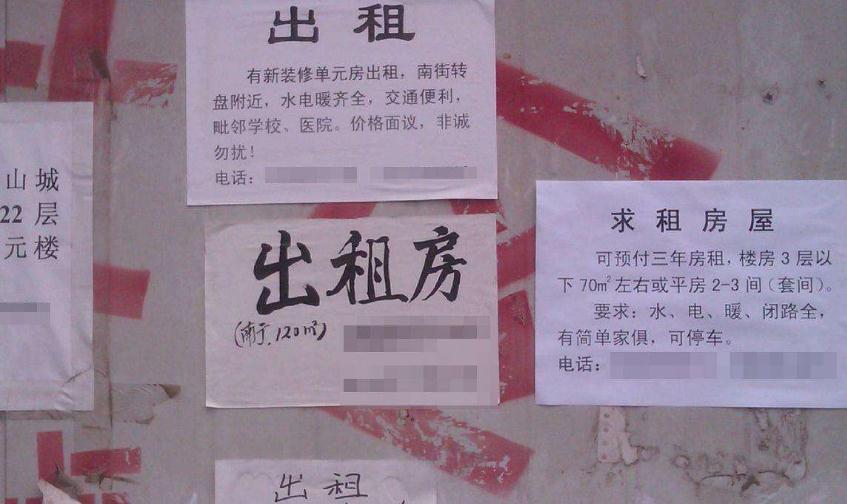 山城
22层
元楼
出租
有新装修单元房出租，南街转
盘附近，水电暖齐全，交通便利，
毗邻学校、医院。价格面议，非诚
勿扰！
电话：
出租房
120㎡)
求租房屋
可预付三年房租，楼房3层以
下70㎡左右或平房2-3间（套间）。
要求：水、电、暖、闭路全，
有简单家俱，可停车。
电话：
出租